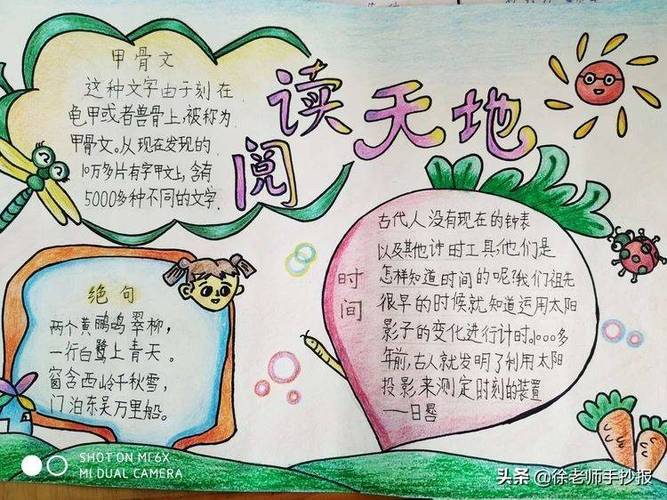 阅读天地
甲骨文
这种文字由于刻在
龟甲或者兽骨上,被称为
甲骨文。从现在发现的
10万多片有字甲文上,含有
5000多种不同的文字.
绝句
两个黄鹂鸣翠柳,
一行白鹭上青天。
窗含西岭千秋雪,
门泊东吴万里船。
时间
古代人没有现在的钟表
以及其他计时工具,他们是
怎样知道时间的呢?我们祖先
很早的时候就知道运用太阳
影子的变化进行计时。1000多
年前,古人就发明了利用太阳
投影来测定时刻的装置
——日晷
SHOT ON MI 6X
MI DUAL CAMERA
头条@徐老师手抄报